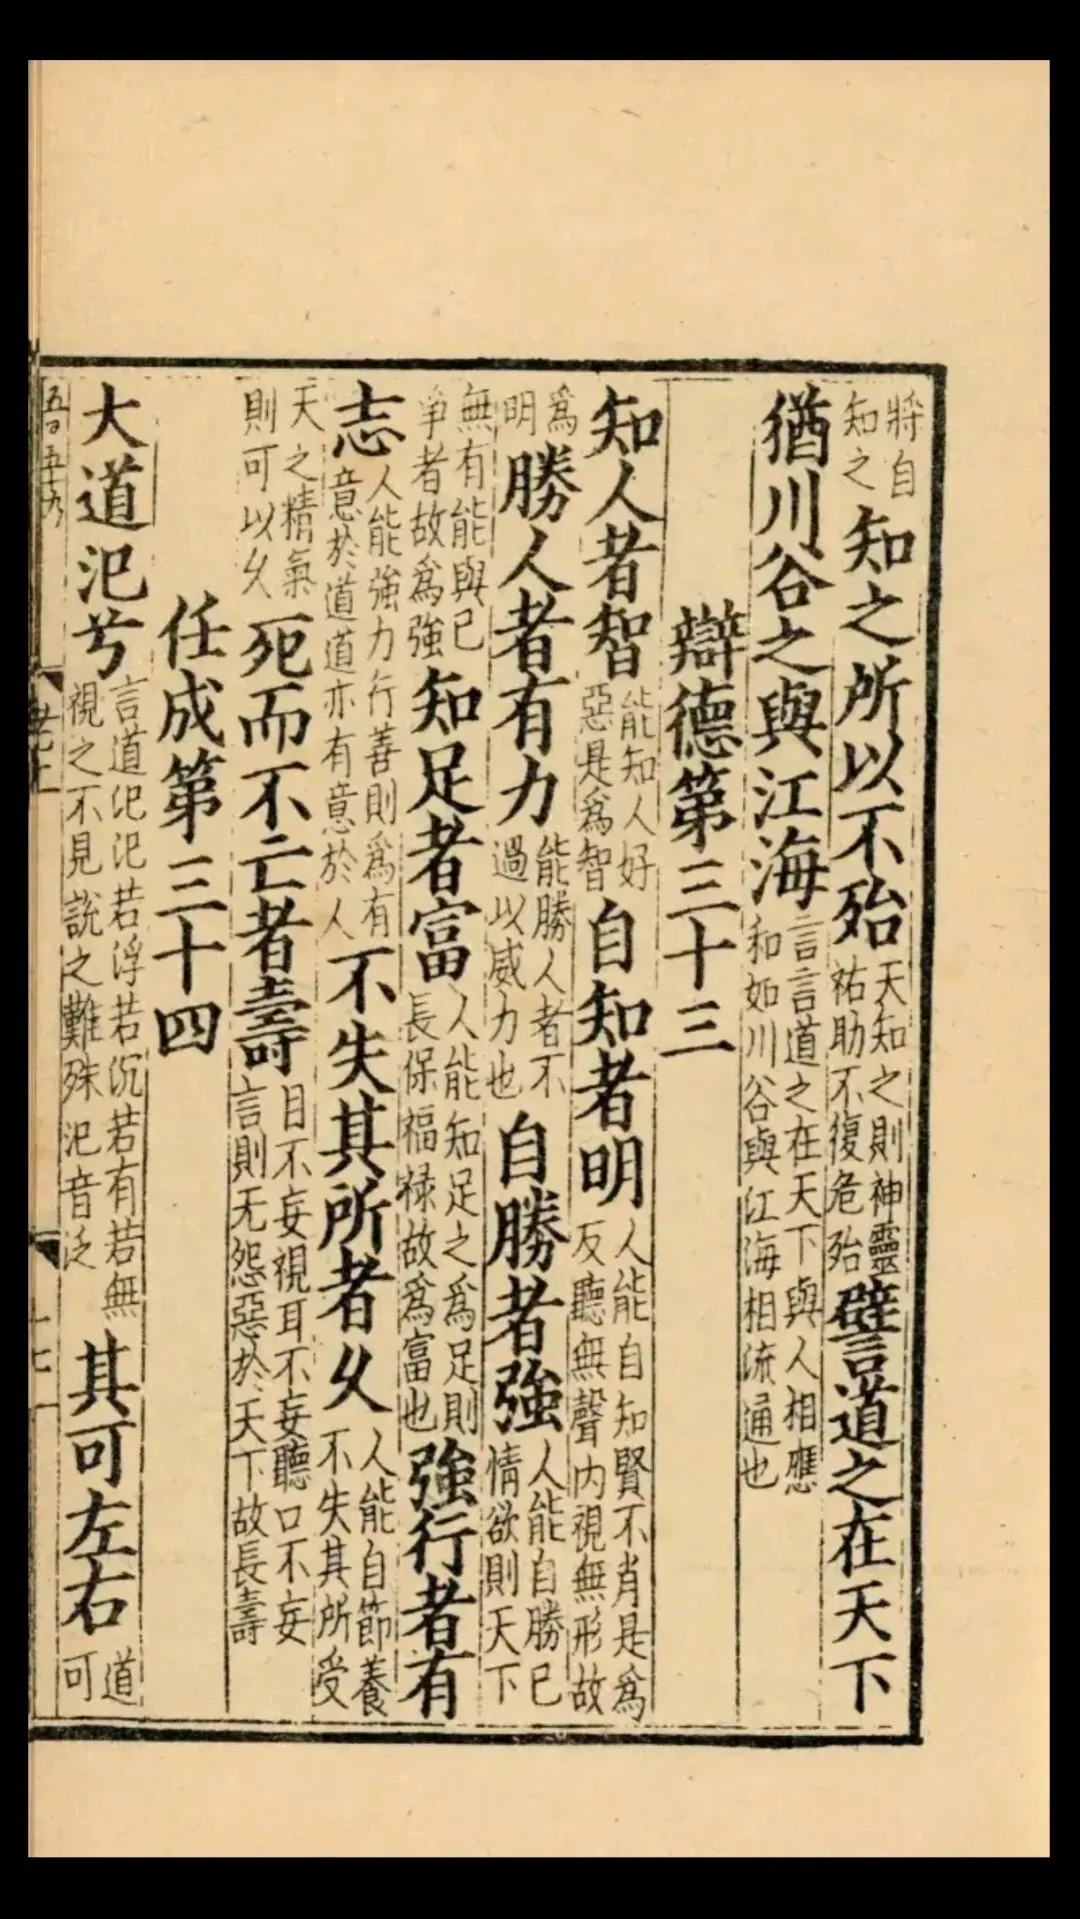 將自知之知之所以不殆天知之則神靈祐助不復危殆譬道之在天下
猶川谷之與江海言道之在天下與人相應和如川谷與江海相流通也
辯德第三十三
知人者智能知人好惡是為智自知者明人能自知賢不肖是為反聽無聲內視無形故
為明勝人者有力能勝人者不過以威力也自勝者強人能自勝己情欲則天下
無有能與己爭者故為強知足者富人能知足之為足則長保福祿故為富也強行者有
志人能強力行善則為有意於道道亦有意於人不失其所者久人能自節養不失其所受
天之精氣則可以久死而不亡者壽目不妄視耳不妄聽口不妄言則无怨惡於天下故長壽
任成第三十四
大道氾兮言道氾氾若浮若沉若有若無視之不見說之難殊氾音泛其可左右道可